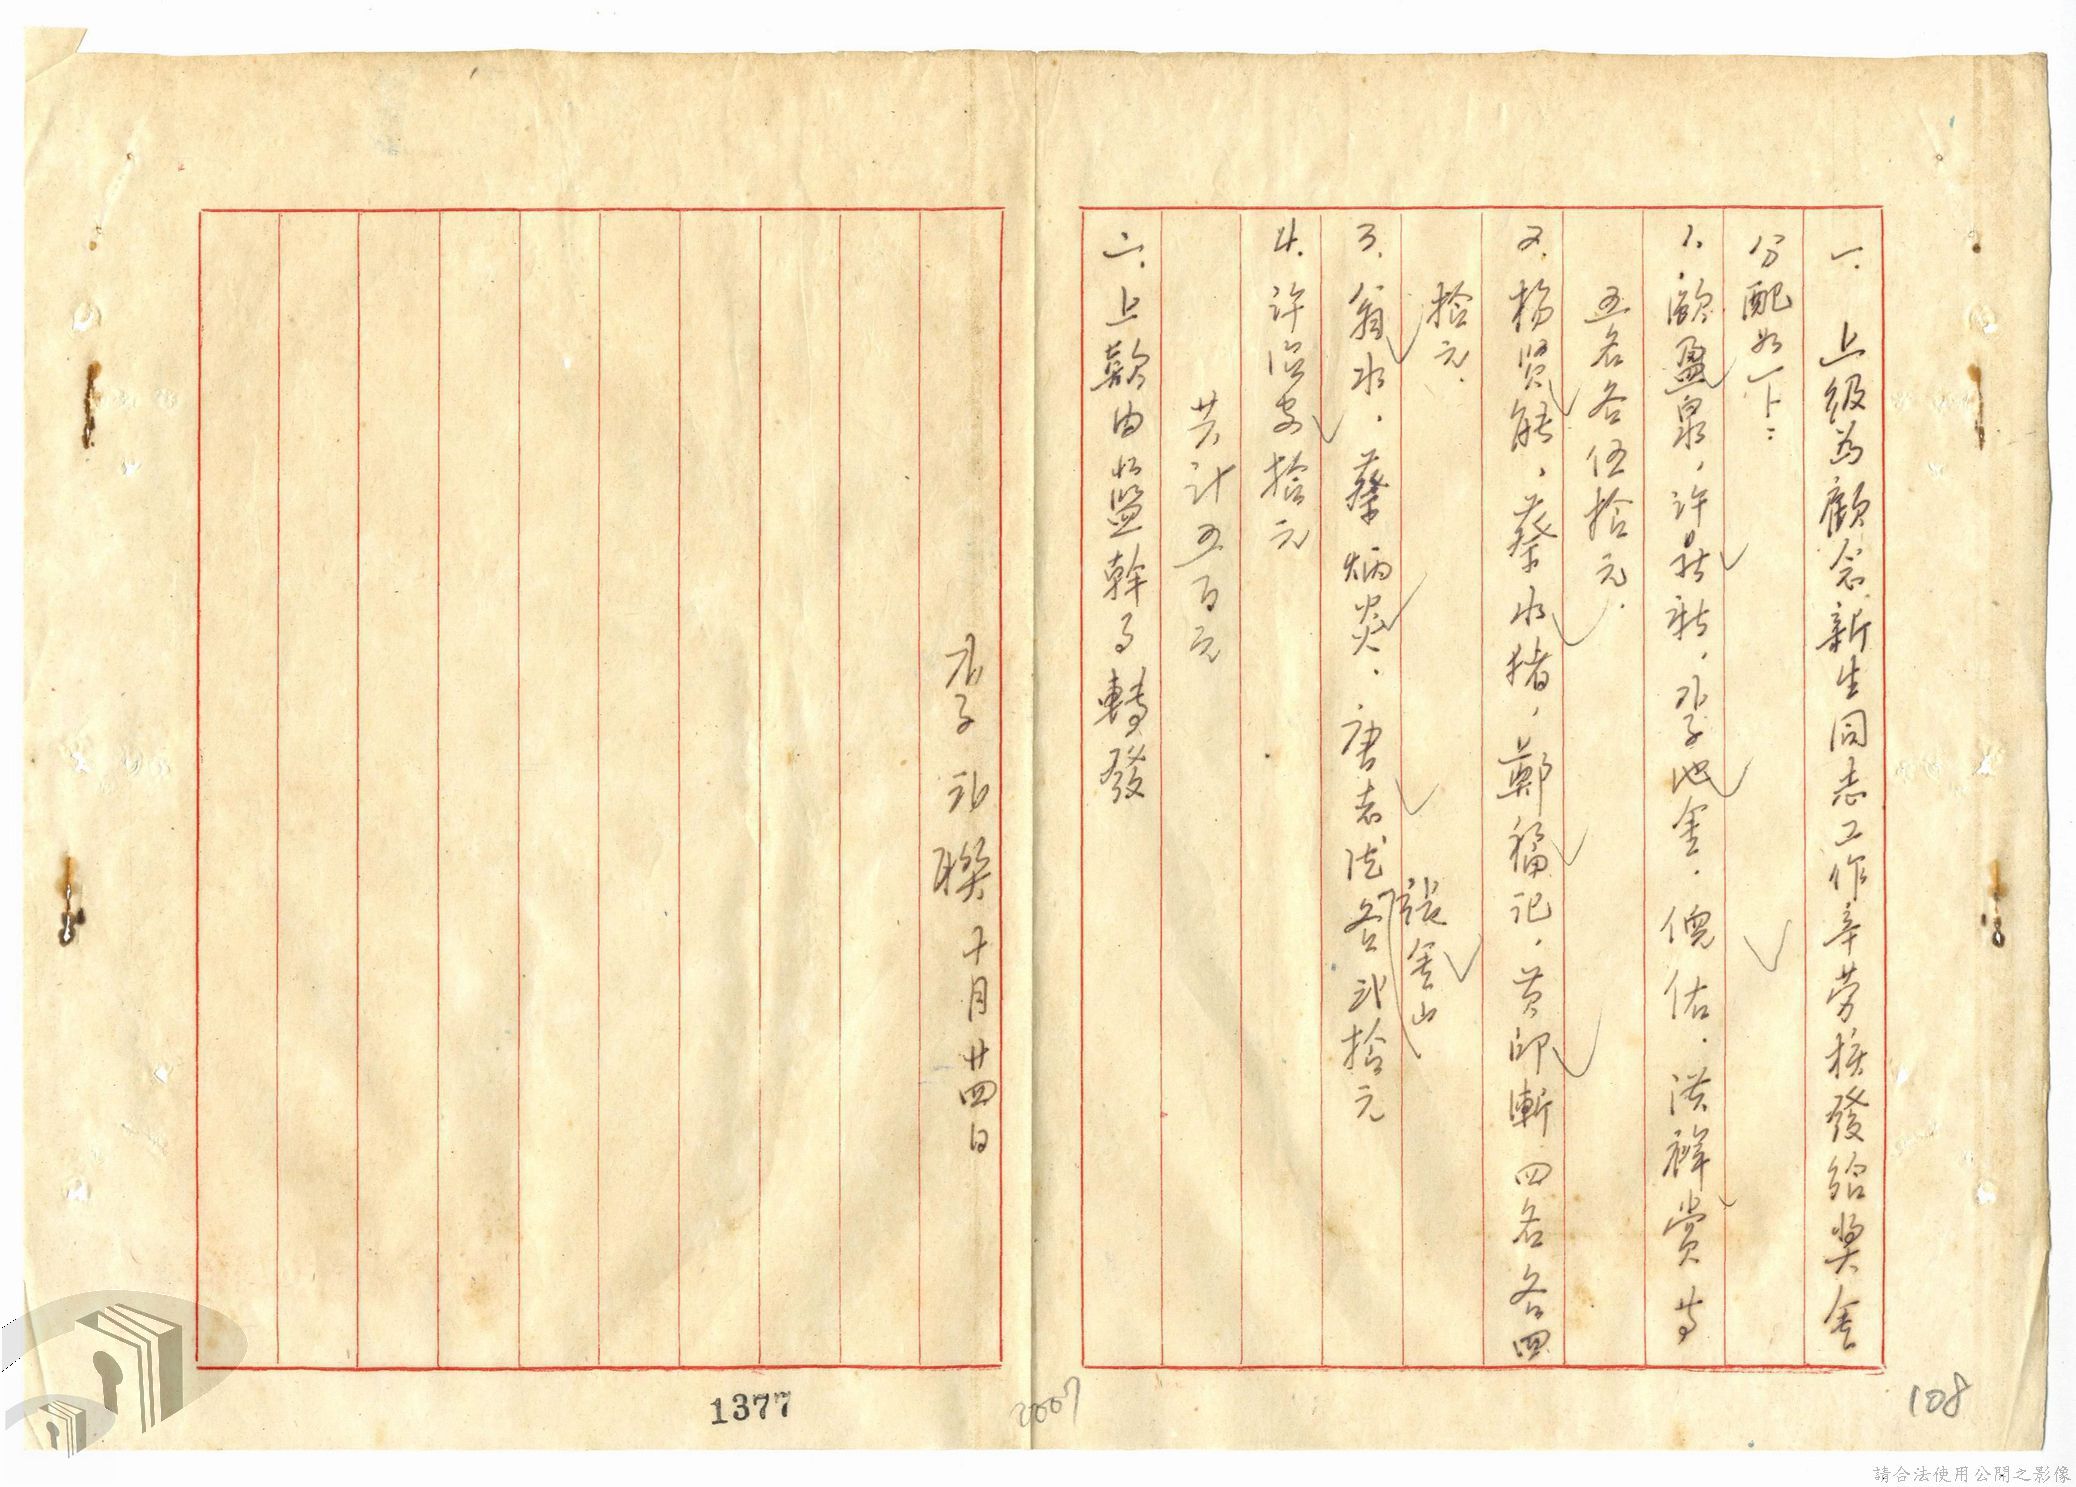 一. 上級為顧念新生同志工作辛勞核發給獎金
分配如下:
1. 歐盈泉, 許　　, 李池金. 倪佑. 洪祥賞等
五名各伍拾元.
2. 楊贤能, 蔡水猪, 鄭福記, 黄印漸 四名各四
拾元.
張金山
3. 翁水. 蔡炳炎. 唐志 各弍拾元
4. 許 安 拾元
共計五百元
二. 上款由 監幹事轉發
李 聯 十月廿四日
1377
2007
108
請合法使用公開之影像